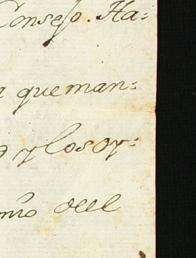 Consejo. Ha=
queman=
y los oy=
nio del